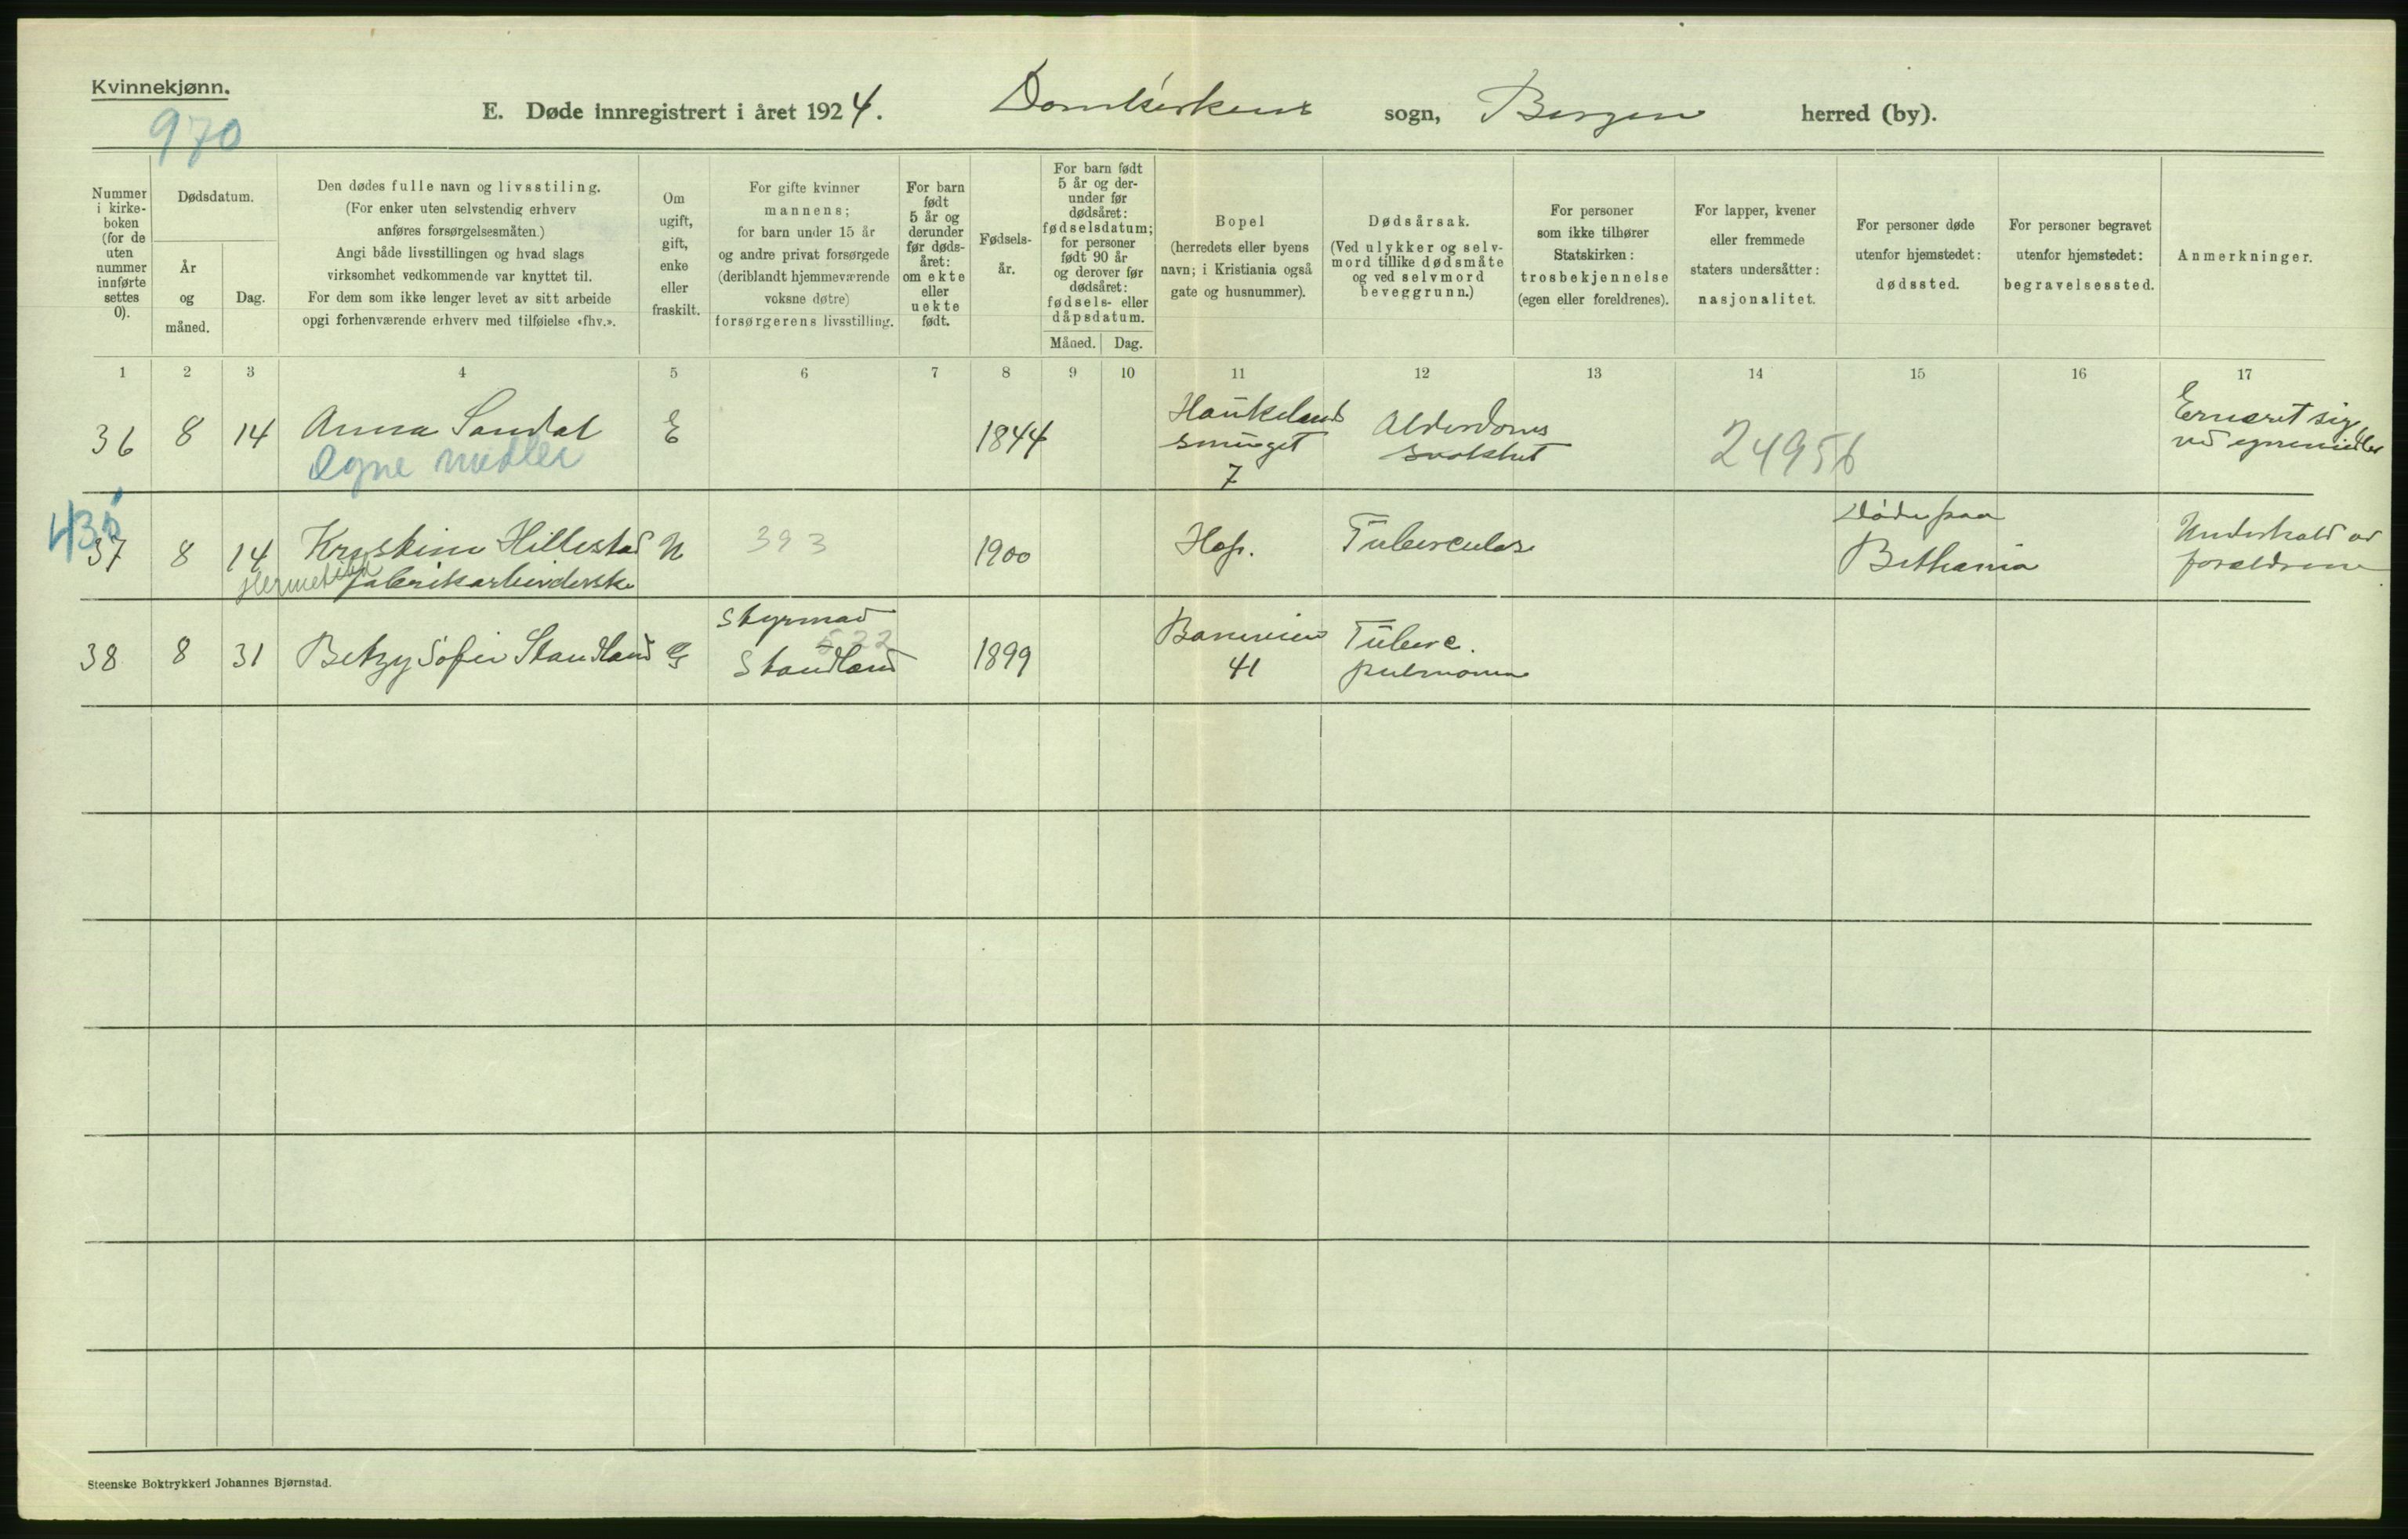 Kvinnekjønn.
970
E. Døde innregistrert i året 1924. Domkirkens sogn, Bergen herred (by).
Nummer
i kirke-
boken
(for de
uten
nummer
innførte
settes
0).
Dødsdatum.
År
og
måned.
Dag.
Den dødes fulle navn og livsstiling.
(For enker uten selvstendig erhverv
anføres forsørgelsesmåten.)
Angi både livsstillingen og hvad slags
virksomhet vedkommende var knyttet til.
For dem som ikke lenger levet av sitt arbeide
opgi forhenværende erhverv med tilføielse «fhv.».
Om
ugift,
gift,
enke
eller
fraskilt.
For gifte kvinner
mannens;
for barn under 15 år
og andre privat forsørgede
(deriblandt hjemmeværende
voksne døtre)
forsørgerens livsstilling.
For barn
født
5 år og
derunder
før døds-
året:
om ekte
eller
uekte
født.
Fødsels-
år.
For barn født
5 år og der-
under før
dødsåret:
fødselsdatum;
for personer
født 90 år
og derover før
dødsåret:
fødsels- eller
dåpsdatum.
Måned. Dag.
Bopel
(herredets eller byens
navn; i Kristiania også
gate og husnummer).
Dødsårsak.
(Ved ulykker og selv-
mord tillike dødsmåte
og ved selvmord
beveggrunn.)
For personer
som ikke tilhører
Statskirken:
trosbekjennelse
(egen eller foreldrenes).
For lapper, kvener
eller fremmede
staters undersåtter:
nasjonalitet.
For personer døde
utenfor hjemstedet:
dødssted.
For personer begravet
utenfor hjemstedet:
begravelsessted.
Anmerkninger.
1 2 3 4 5 6 7 8 9 10 11 12 13 14 15 16 17
36 8 14 Anna Sandal E 1844
Egne midler
Haukeland
smuget
7
Alderdoms
svakhet
24956
Ernæret sig
ved egne midler
435
37 8 14 Kryskine Hillestad U 393 1900 Hop. Tuberculose
Hermetikk fabrikarbeiderske
Døde paa
Bethania
Underhold av
forældrene
38 8 31 Betzy Sofie Standland G
Styrmad
522
Standland
1899
Baneveien
41
Tuberc.
pulmonum
Steenske Boktrykkeri Johannes Bjørnstad.